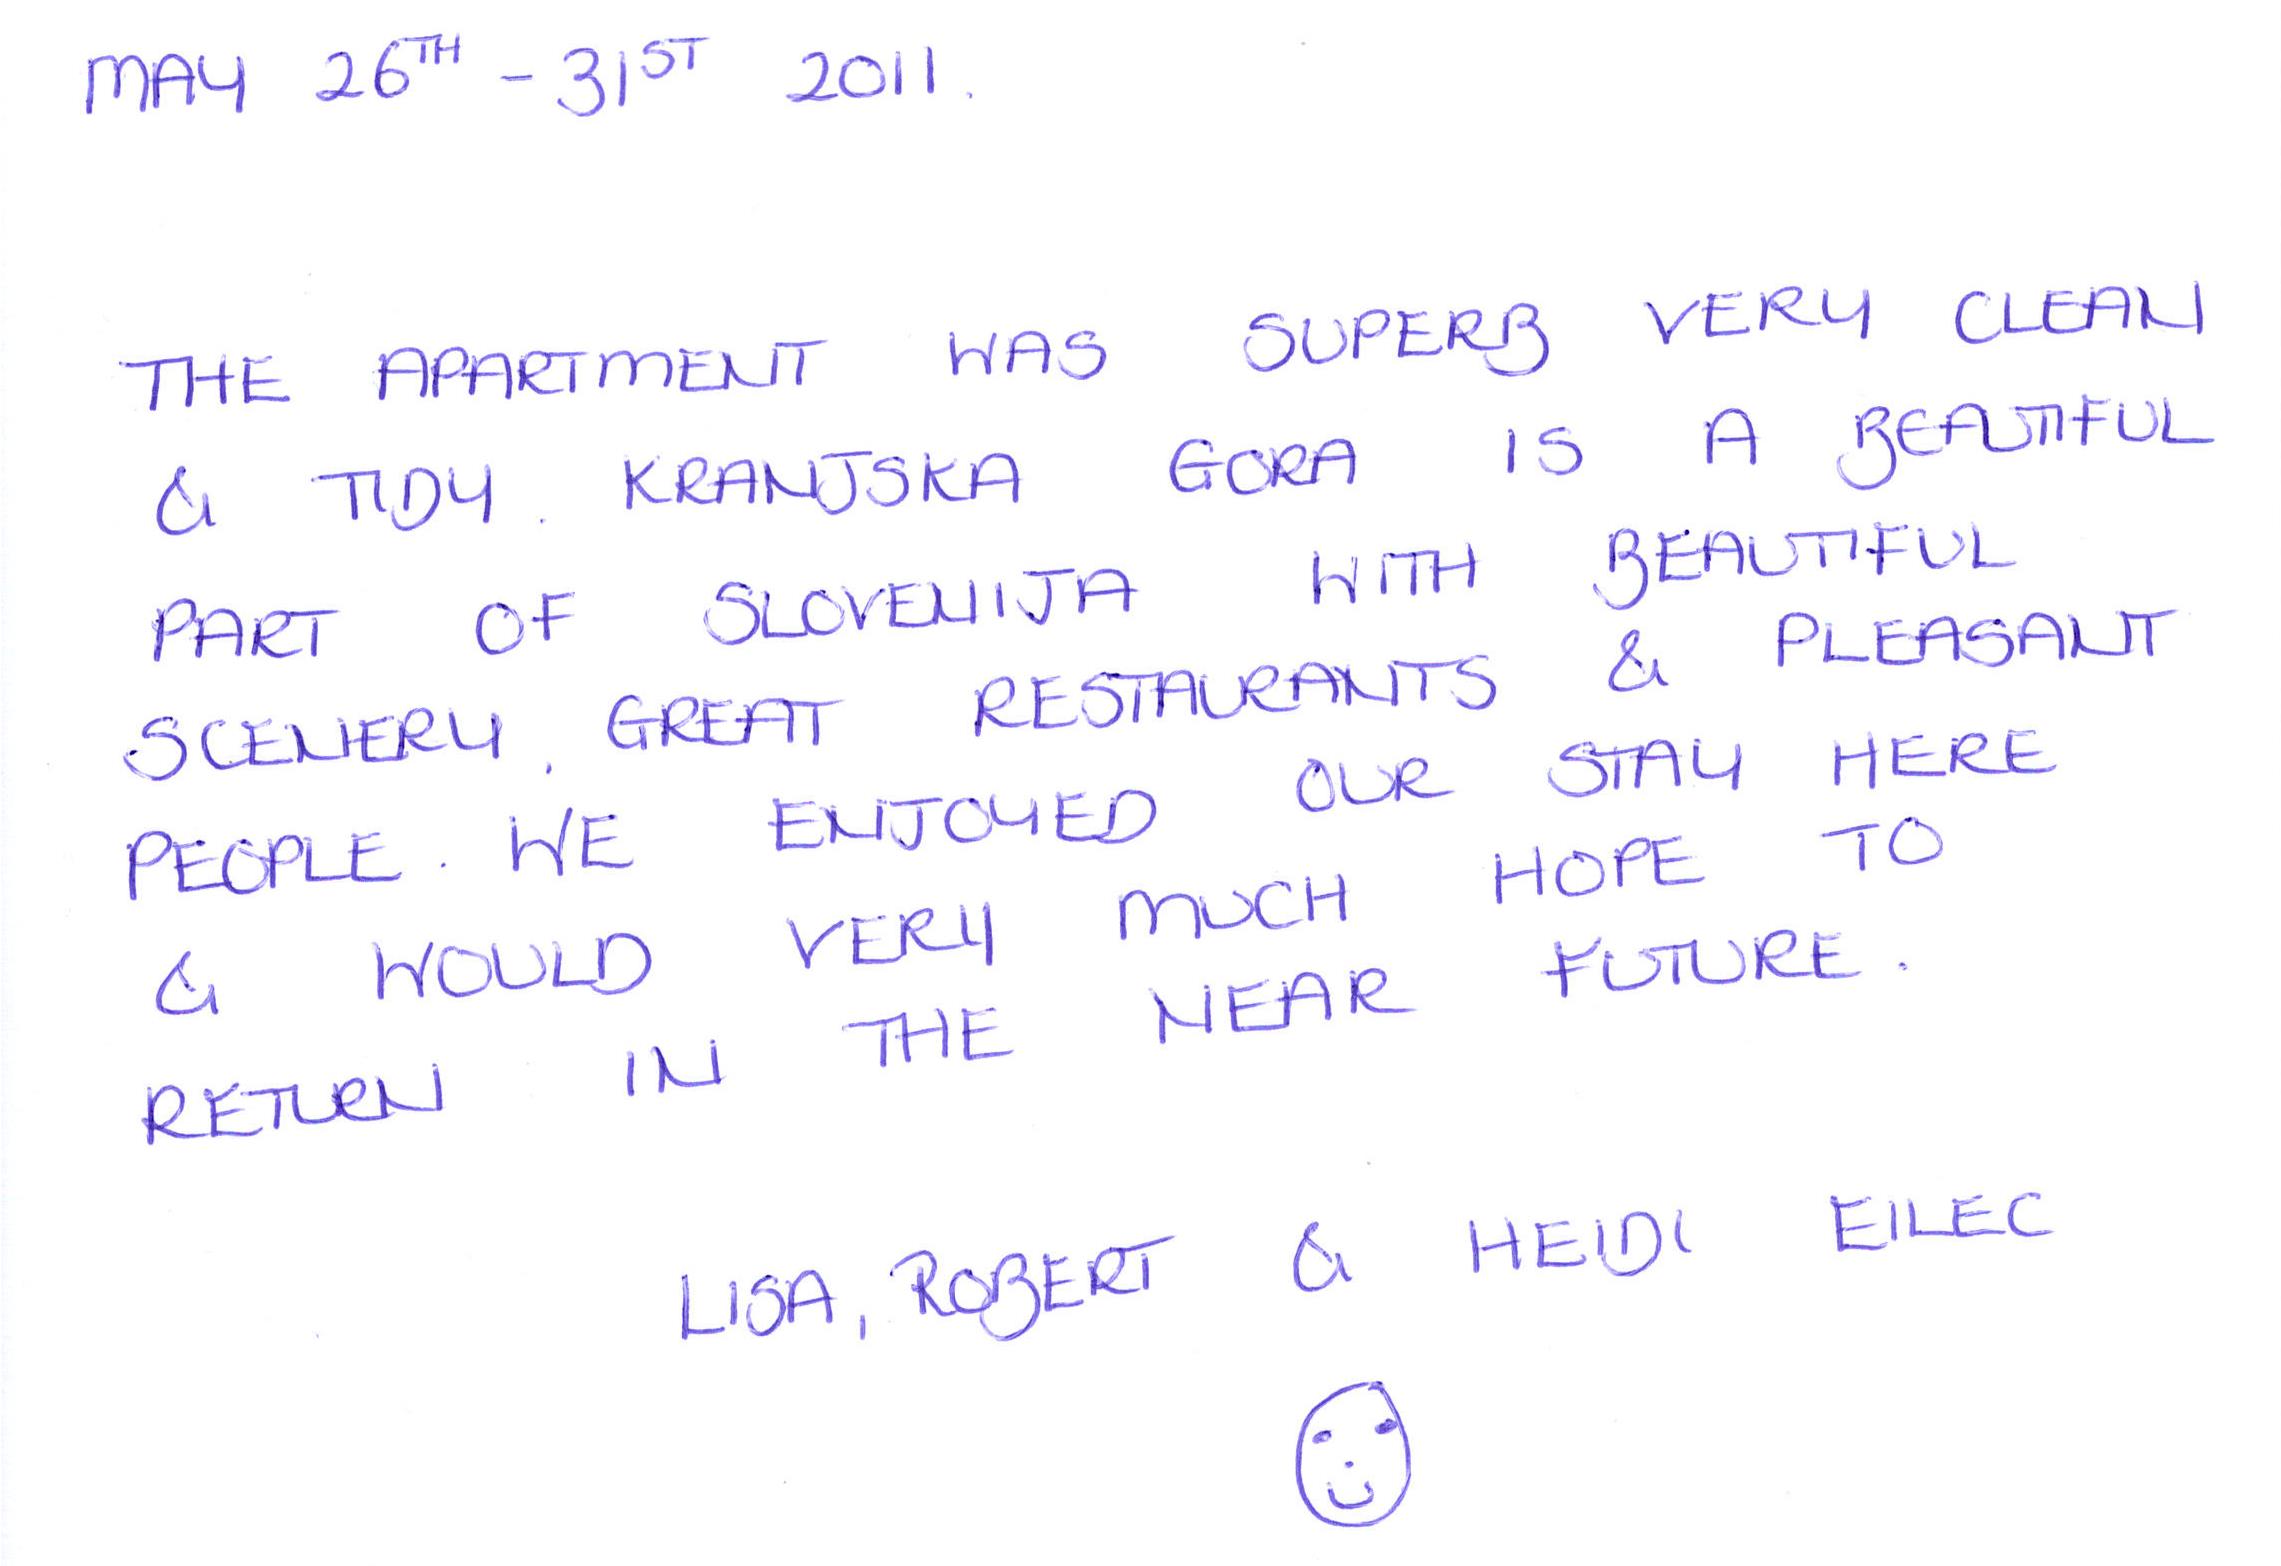 MAY 26TH - 31ST 2011.
THE APARTMENT WAS SUPERB VERY CLEAN
& TIDY. KRANJSKA GORA IS A BEAUTIFUL
PART OF SLOVENIJA WITH BEAUTIFUL
SCENERY. GREAT RESTAURANTS & PLEASANT
PEOPLE. WE ENJOYED OUR STAY HERE
& WOULD VERY MUCH HOPE TO
RETURN IN THE NEAR FUTURE.
LISA, ROBERT & HEIDI EILEC